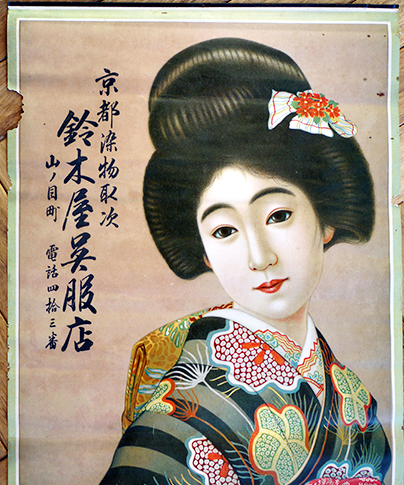 京都染物取次
鈴木屋呉服店
山ノ目町 電話四拾三番